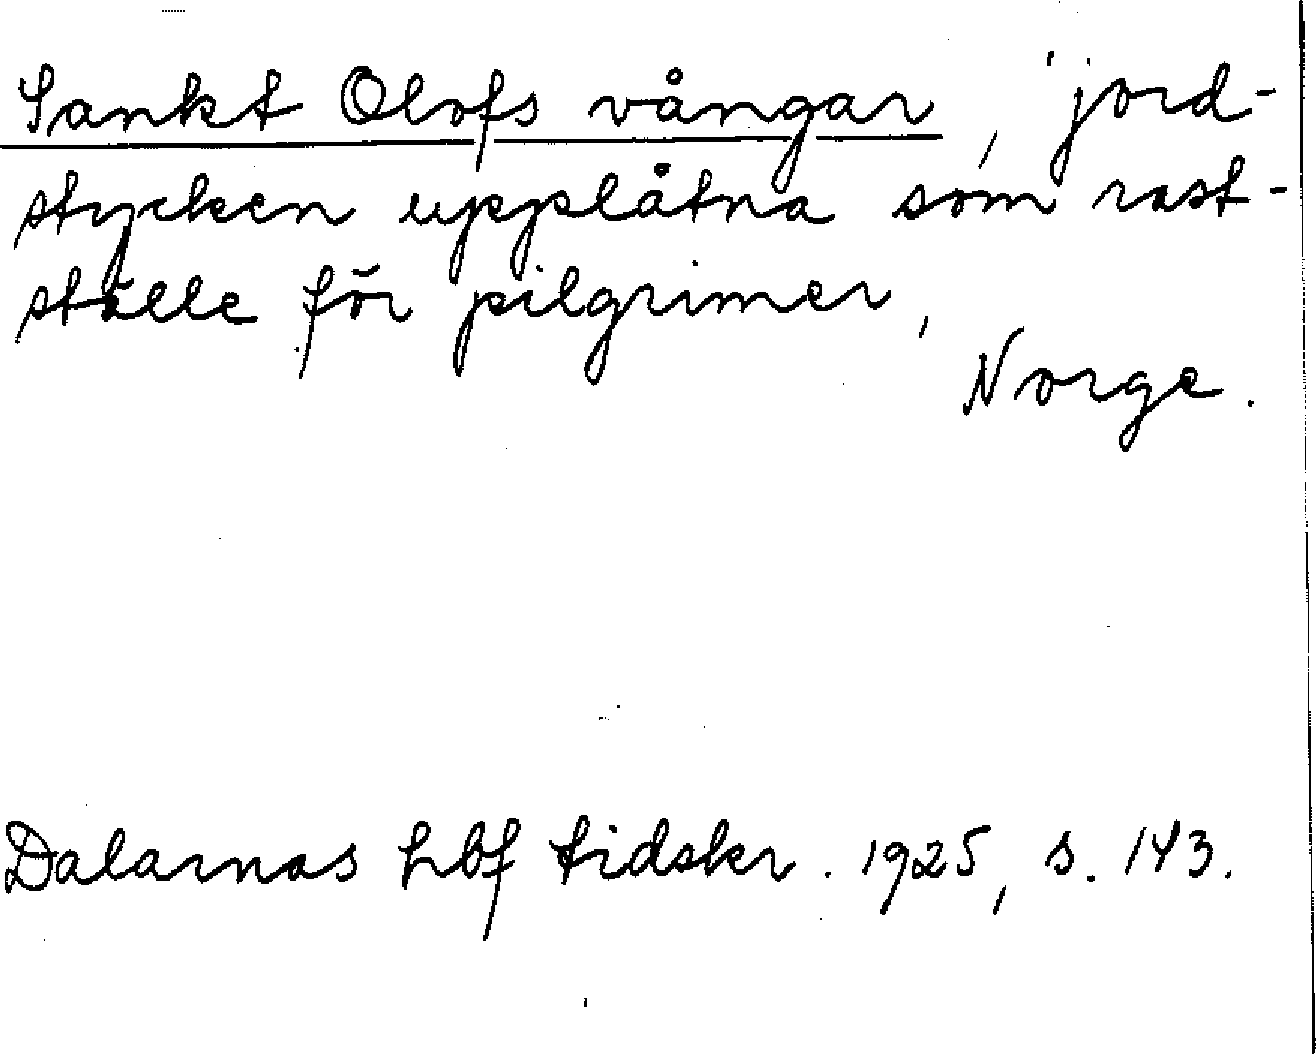 Sankt Olofs vångar, jord-
stycken upplåtna som rast-
ställe för pilgrimer,
Norge.
Dalarnas hbf tidskr. 1925, s. 143.